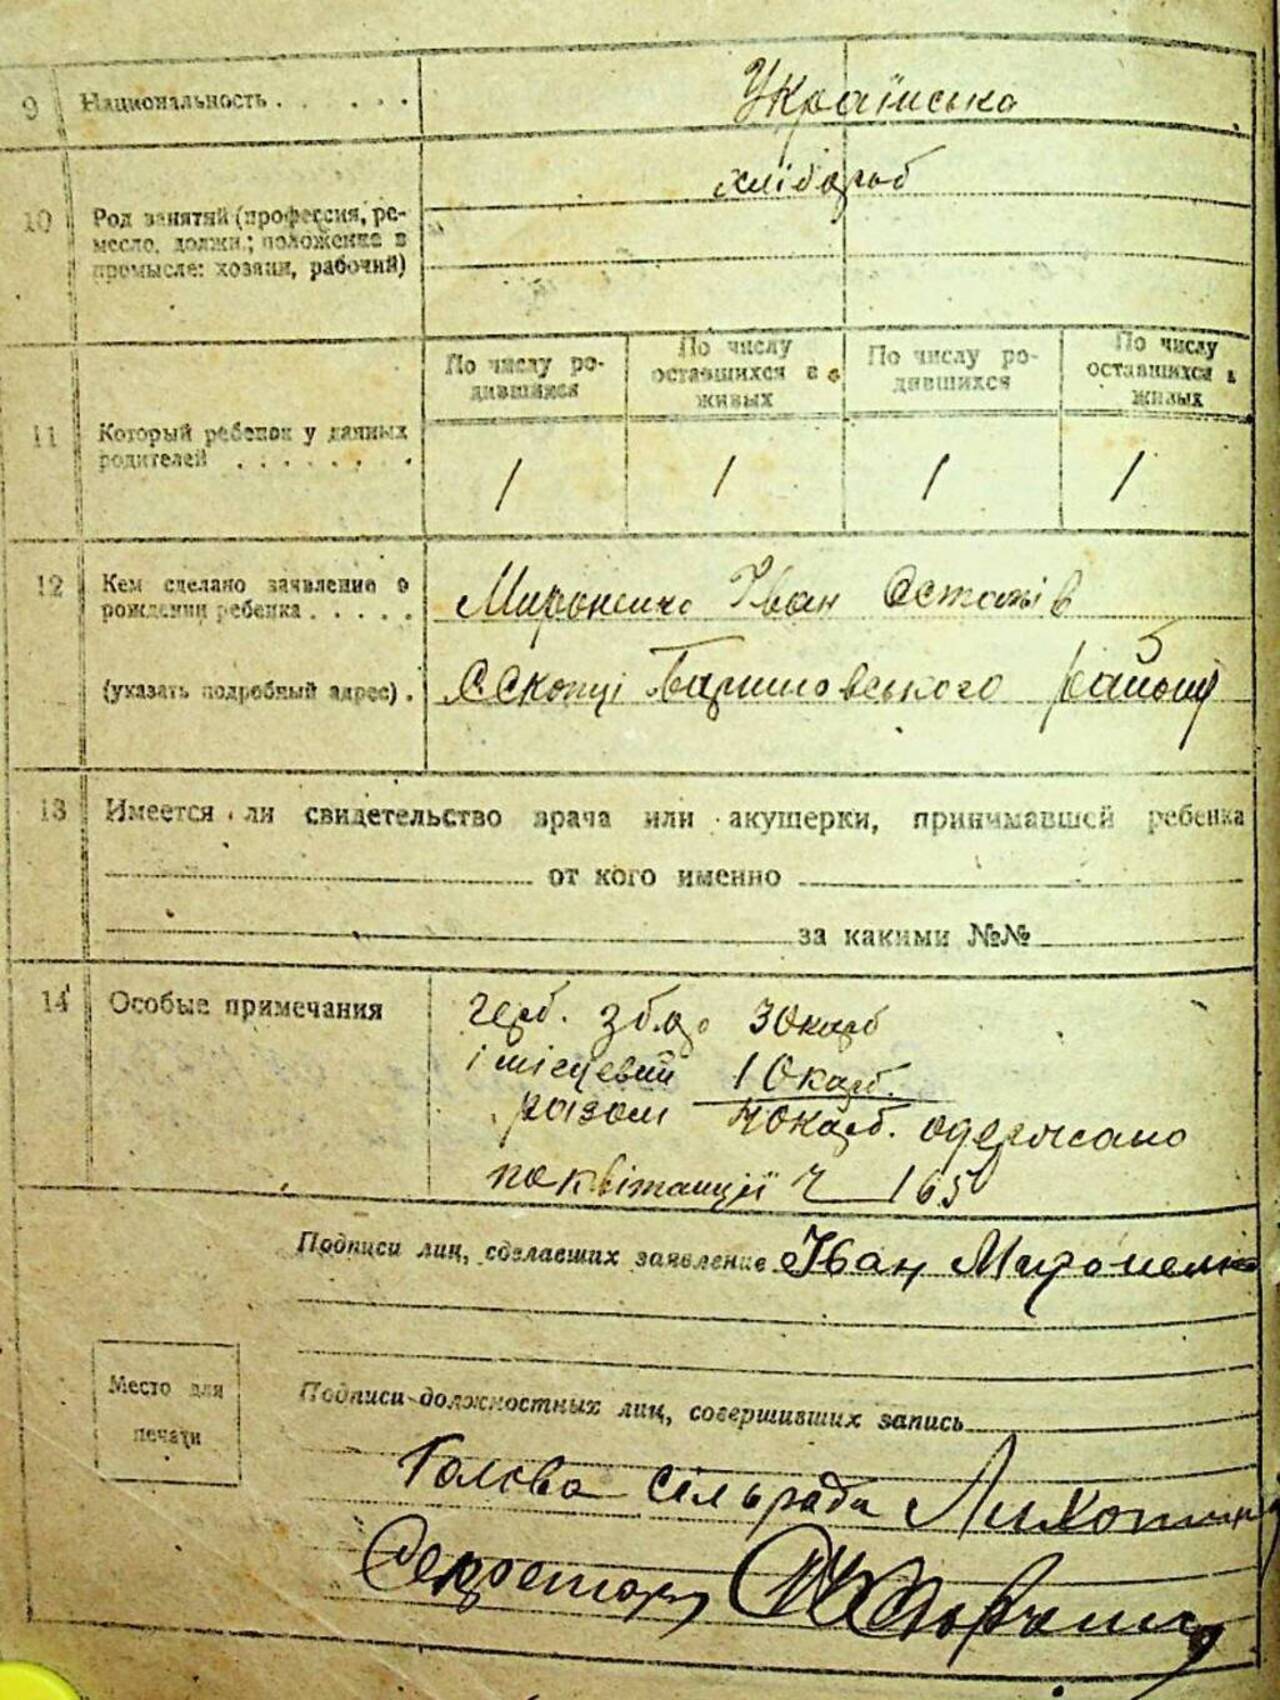 9 Национальность . . . . . Українська
хлібороб
10 Род занятий (профессия, ре-
месло, должн.; положение в
промысле: хозяин, рабочий)
По числу ро-
дившихся
По числу
оставшихся в
живых
По числу ро-
дившихся
По числу
оставшихся в
живых
11 Который ребенок у данных
родителей . . . . . . .
1 1 1 1
12 Кем сделано заявление о
рождении ребенка . . . . .
Мироненко Іван Остапів
(указать подробный адрес) .
с Скопці Баришовського району
13 Имеется ли свидетельство врача или акушерки, принимавшей ребенка
от кого именно
за какими №№
14 Особые примечания
герб. збор 30 карб
і місцевий 10 карб.
разом 40 карб. одержано
по квітанції Ч 165
Подписи лиц, сделавших заявление Іван Мироненко
Место для
печати
Подписи должностных лиц, совершивших запись
Голова сільради
Секретарь